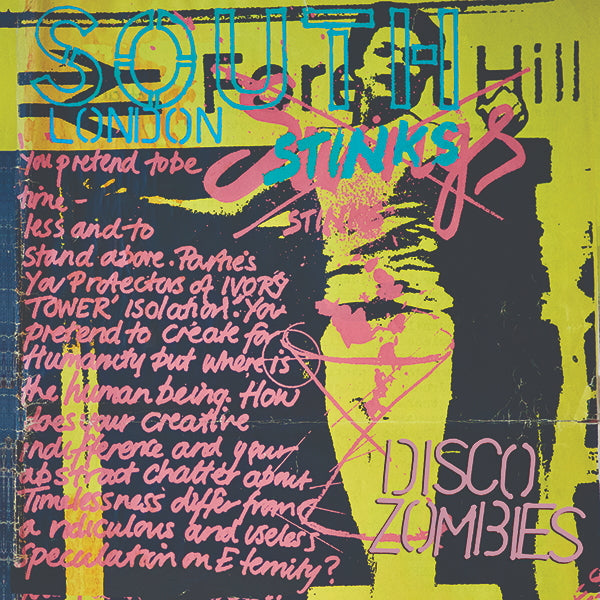 SOUTH
Hill
LONDON
STINKS
STINKS
You pretend to be
time-
less and to
stand above.
You Protectors of IVORY
TOWER' isolation! You
pretend to create for
Humanity but where is
the human being. How
does your creative
indifference and your
abstract chatter about
Timelessness differ from
a ridiculous and useless
speculation on Eternity?
DISCO
ZOMBIES